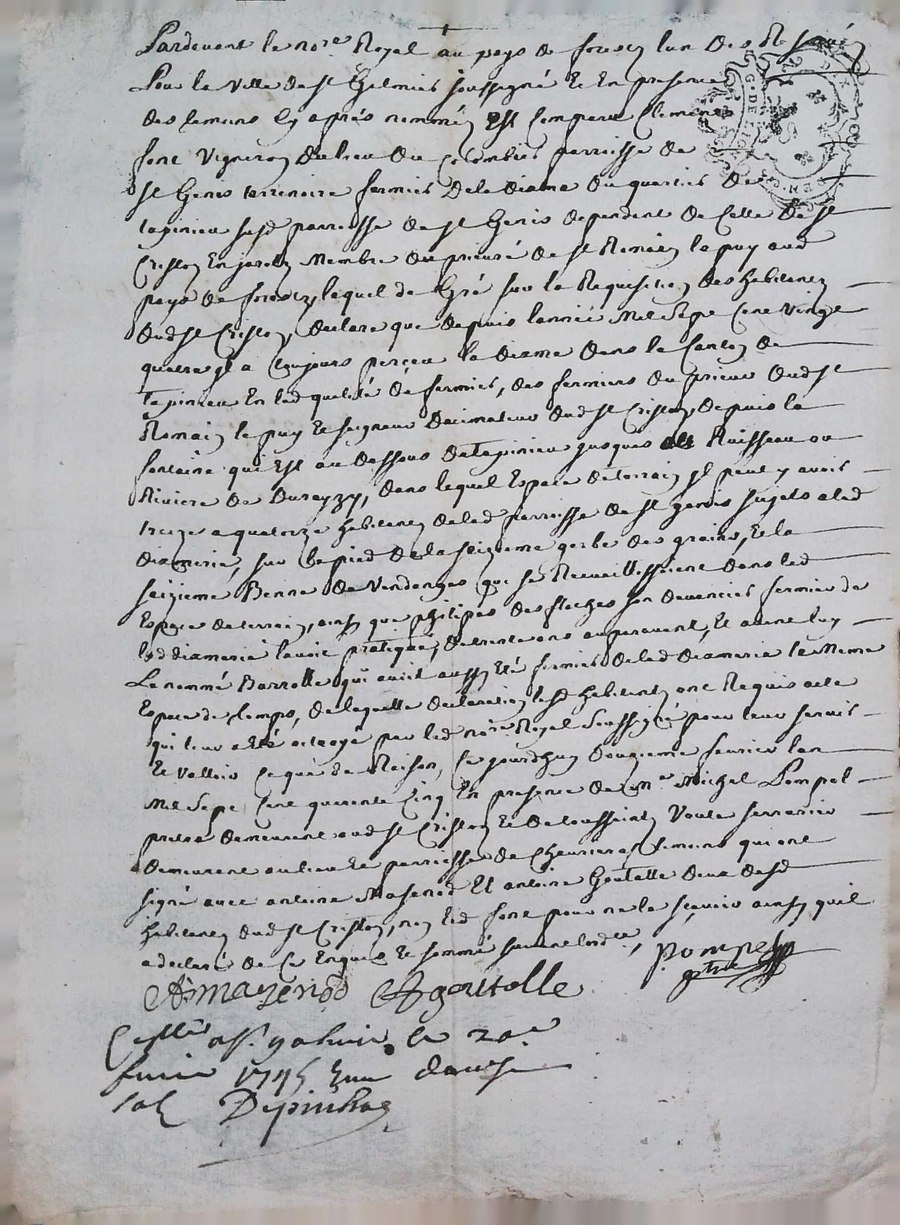 Pardevant le no.re Royal au pays de forest lun des Reservés
Pour la Ville de st Galmier soussigné et En presence
des temoins Cy après nommés Est Comparu Clement
font Vigneron du lieu du Colombier parroisse de
st Genis terrenoire fermier de la diame du quartier de
tapinieu susd parroisse de st Genis dependent de Celle de st
Cristo En jarest Membre du prieuré de st Romain le puy aud
pays de forest, lequel de Gré sur la Requisition des habitants
dud st Cristo, declare que depuis lannée Mil Sept Cent Vingt
quatre jl a toujours perçeu la diame dans le Canton de
Tapinieu En lad qualité de fermier, des fermiers du prieur dud st
Romain le puy et seigneur Decimateur dud st Cristo, depuis la
fontaine qui Est au dessous de Tapinieu jusques au Ruisseau ou
Riviere de Dureyzy, dans lequel Espace de terrain jl peut y avoir
treize a quatorze habitants de lad parroisse de st genis sujets a lad
diamerie, sur le pied de la seizieme gerbe des grains, et la
seizieme Benne de Vendanges qui se Recueillissoient dans led
Espace de terrain, ainsy que philipes des floches son devancier fermier de
lad diamerie lavoit pratiqué, de trente ans auparavant, Et avant luy
Le nommé Barrolle qui avoit aussy Eté fermier de lad diamerie le Meme
Espace de temps, de laquelle declaration lesd habitants ont Requis acte
qui leur a Eté octroyé par led no.re Royal Soussigné pour leur servir
Et Valloir Ce que de Raison, Ce jourdhuy Douzieme fevrier lan
Mil Sept Cent quarente Cinq En presence de M.re Michel Pompal
pretre demeurant aud st Cristo et de toussaint Voute serrurier
demeurant au lieu et parroisse de Chevrieres temoins qui ont
signé avec antoine Mazenod Et antoine Goutelle deux desd
habitants dud st Cristo, non led font pour ne le sçavoir ainsy quil
a declaré de Ce Enquis et sommé
A mazenod A goutelle Pompal
ptre
Con.llé a st galmier le 20.e
fevrier 1745 Reçu douze
sols Depinhac